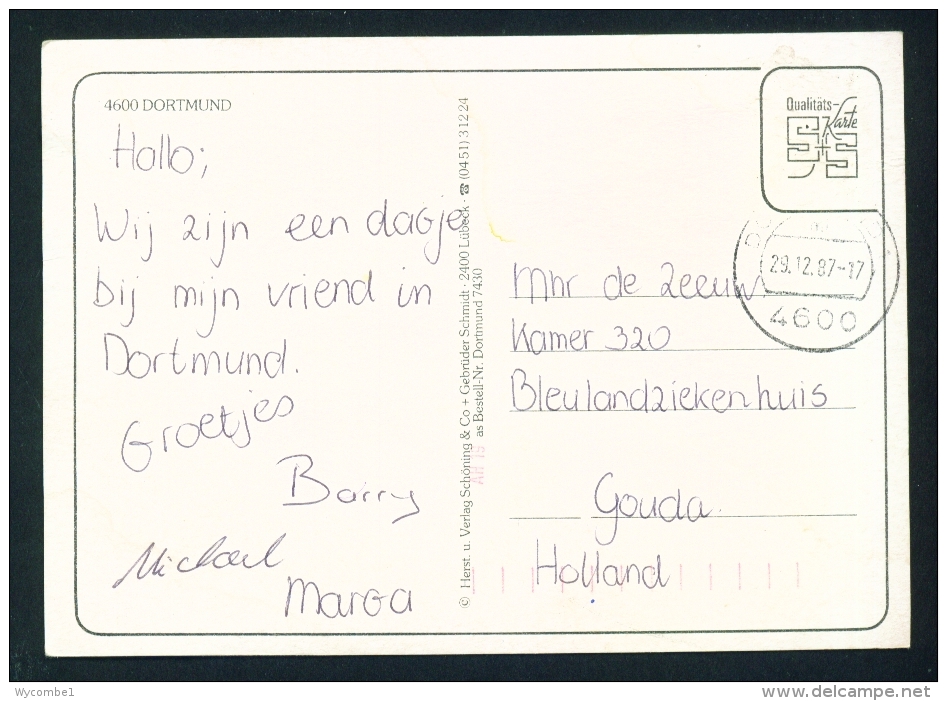 4600 DORTMUND
Hallo;
Wij zijn een dagje
bij mijn vriend in
Dortmund.
Groetjes
Barry
Michael
Marga
© Herst. u. Verlag Schöning & Co + Gebrüder Schmidt · 2400 Lübeck · ☎ (04 51) 3 12 24
as Bestell-Nr. Dortmund 7430
Qualitäts-
Karte
S+S
29.12.87-17
4600
Mhr de Zeeuw.
Kamer 320
Bleulandziekenhuis
Gouda
Holland
Wycombe1
www.delcampe.net